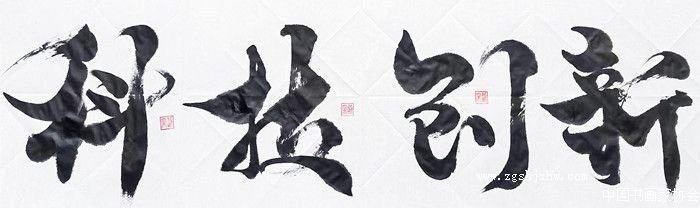 科技创新
www.zgshjxhw.com
中国书画家协会